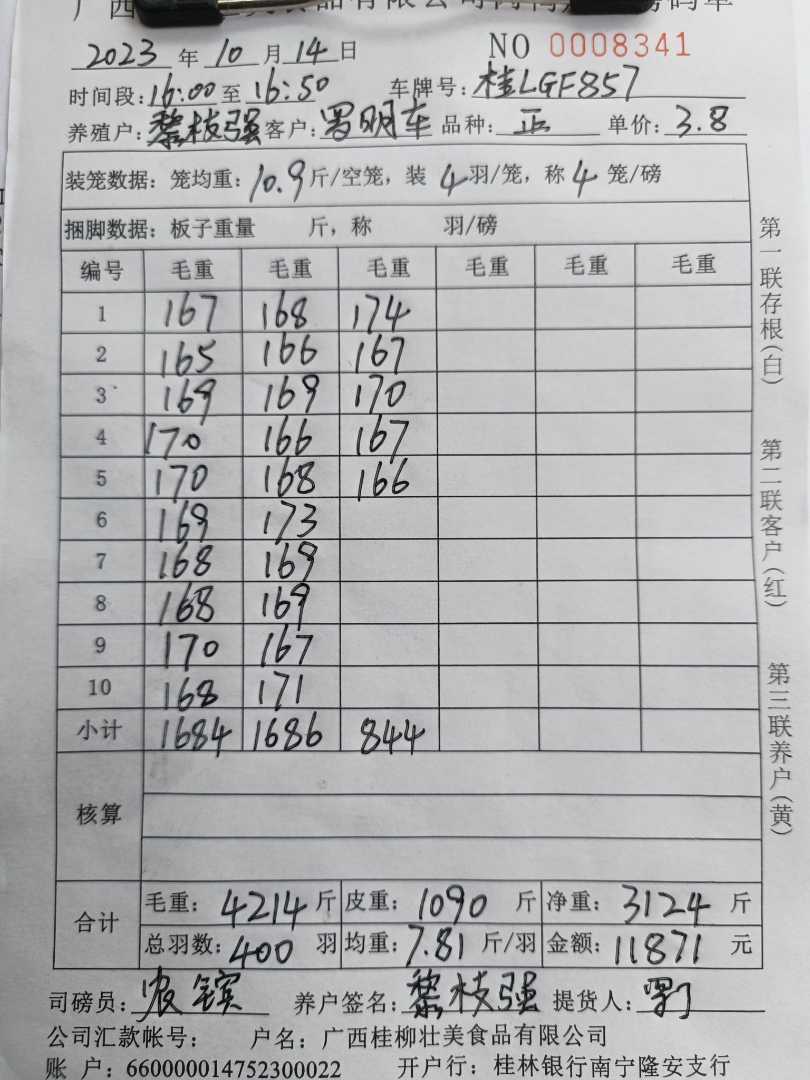 2023 年 10 月 14 日 NO 0008341
时间段: 16:00 至 16:50 车牌号: 桂LGF857
养殖户: 黎枝强 客户: 罗明车 品种: 正 单价: 3.8
装笼数据: 笼均重: 10.9 斤/空笼, 装 4 羽/笼, 称 4 笼/磅
捆脚数据: 板子重量 斤, 称 羽/磅
编号 毛重 毛重 毛重 毛重 毛重 毛重
1 167 168 174
2 165 166 167
3 169 169 170
4 170 166 167
5 170 168 166
6 169 173
7 168 169
8 168 169
9 170 167
10 168 171
小计 1684 1686 844
核算
合计
毛重: 4214 斤 皮重: 1090 斤 净重: 3124 斤
总羽数: 400 羽 均重: 7.81 斤/羽 金额: 11871 元
司磅员: 农镔 养户签名: 黎枝强 提货人:
公司汇款帐号: 户名: 广西桂柳壮美食品有限公司
账 户: 660000014752300022 开户行: 桂林银行南宁隆安支行
第一联存根(白)
第二联客户(红)
第三联养户(黄)